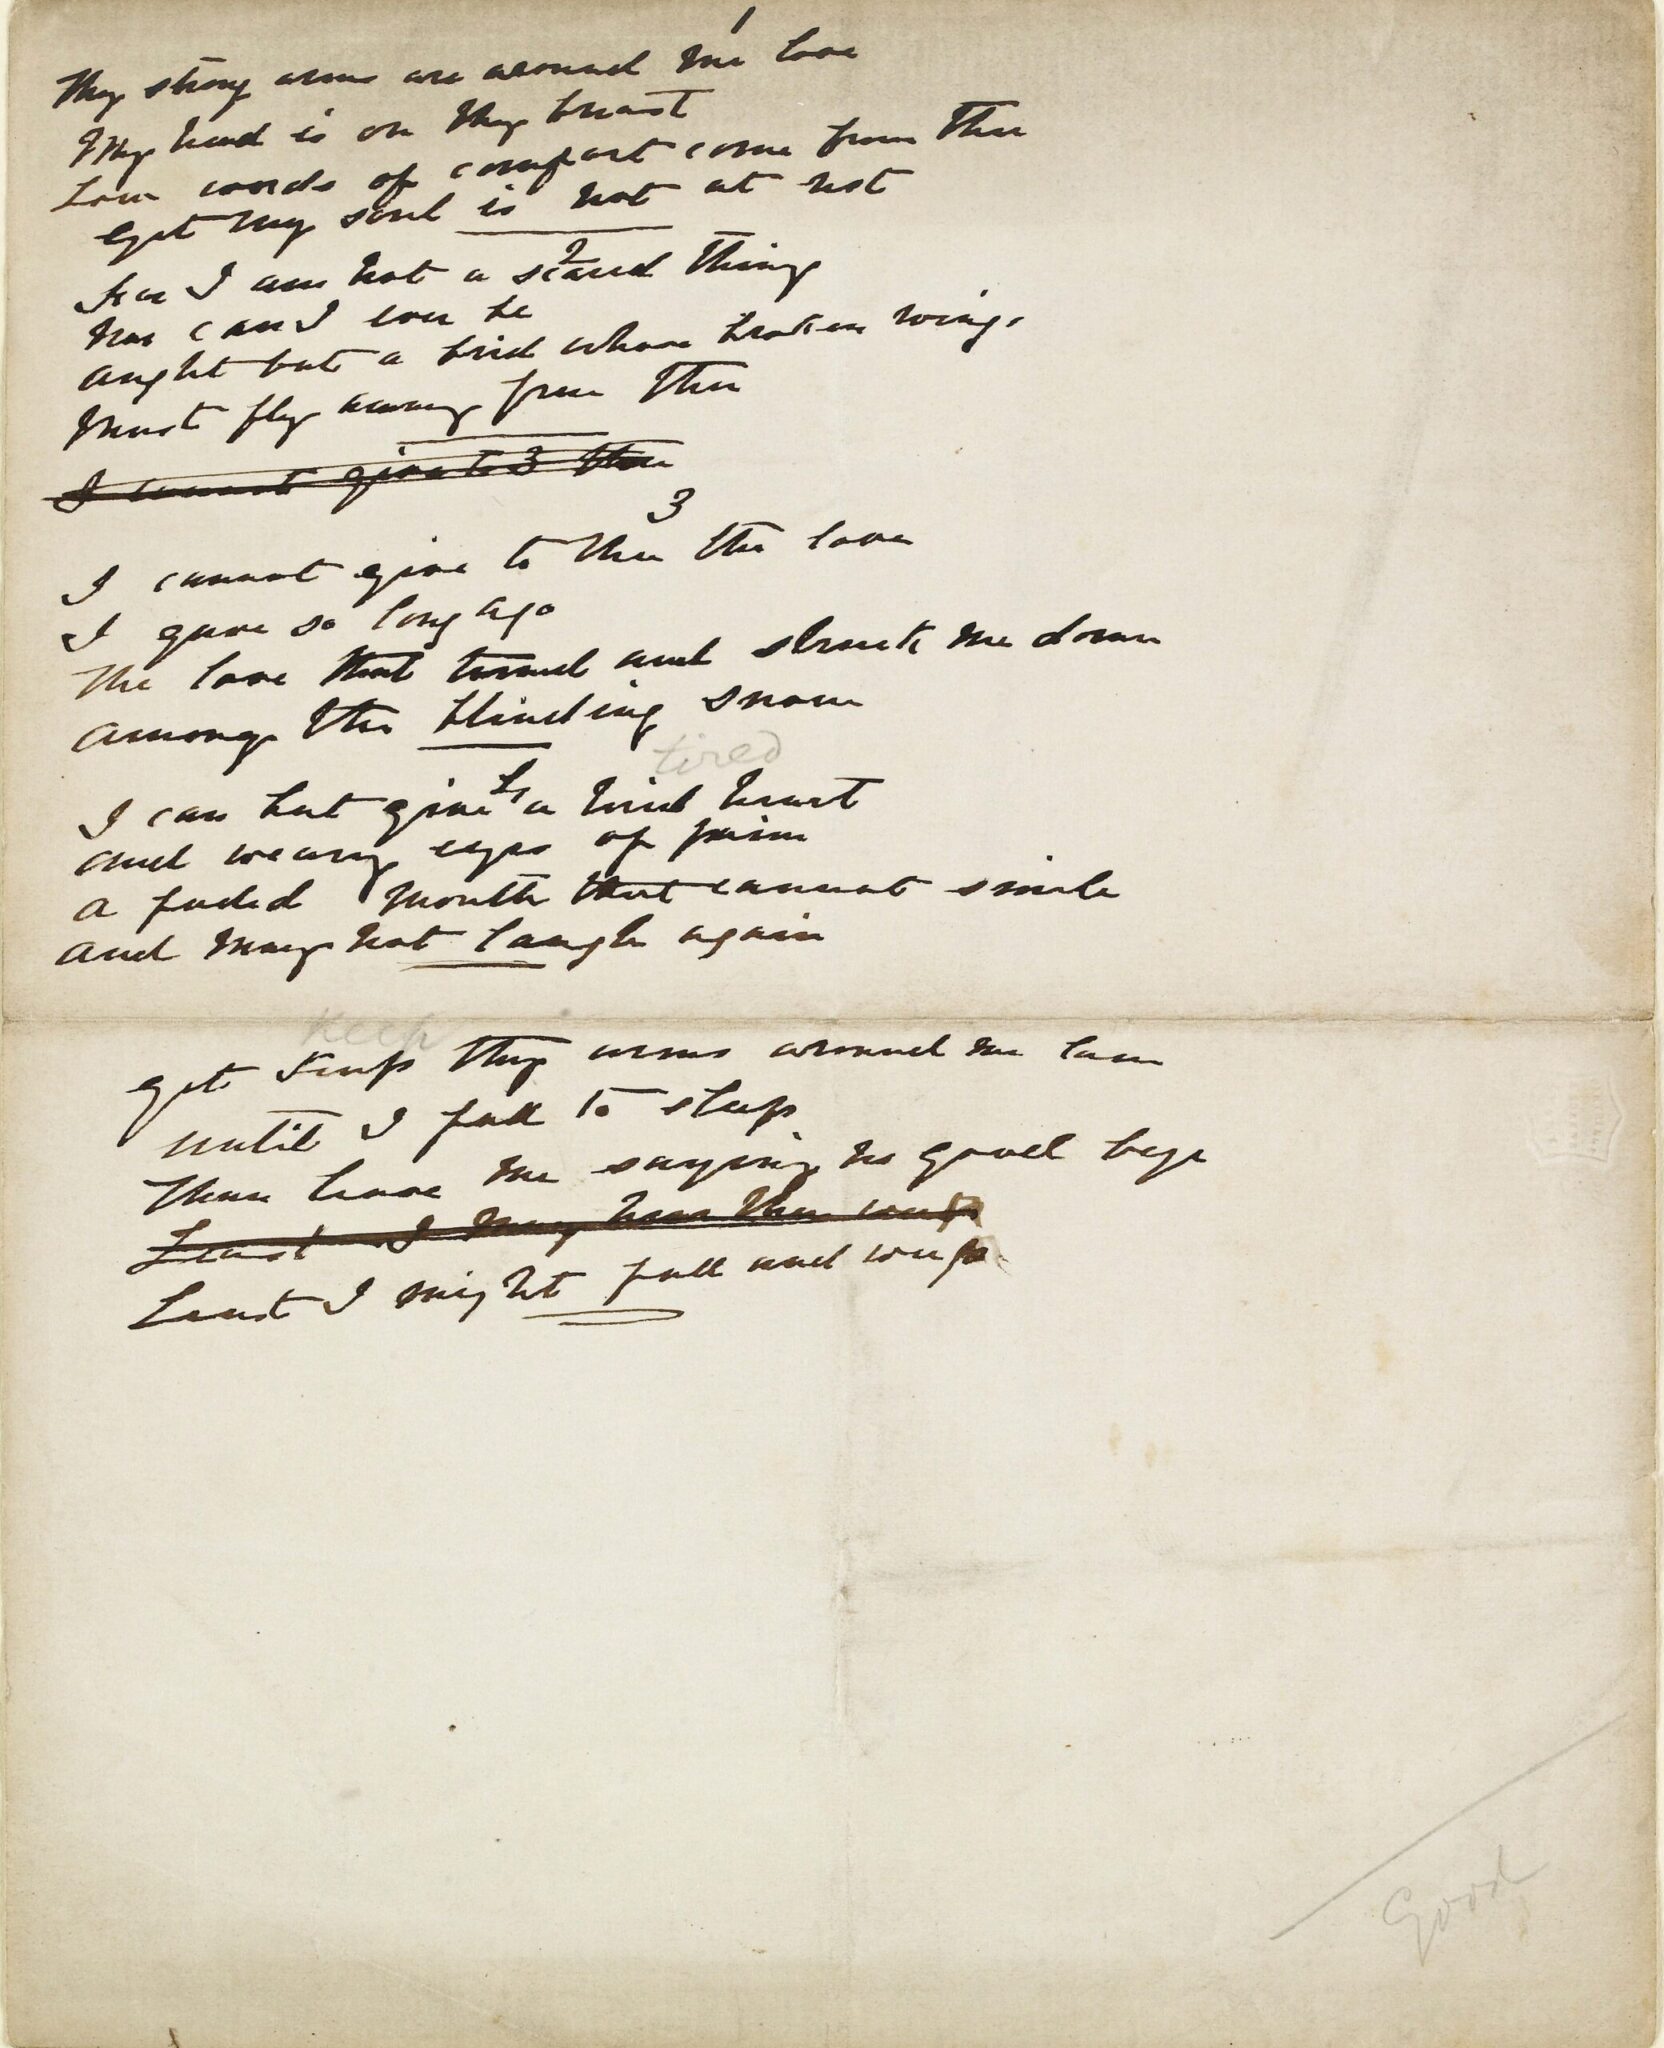 1
Thy strong arms are around me love
My head is on thy breast
Low words of comfort come from thee
Yet my soul is not at rest
2
For I am not a scared thing
Nor can I ever be
Aught but a bird whose broken wing
Must fly away from thee
I cannot give to 3 thee
3
I cannot give to thee the love
I gave so long ago
The love that turned and struck me down
Among the blinding snow
tired
4
I can but give a tried heart
And weary eyes of pain
A faded mouth that cannot smile
And may not laugh again
keep
Yet keep thy arms around me love
Until I fall to sleep
Then leave me saying no good bye
Least I may then
Least I might fall and weep
Good